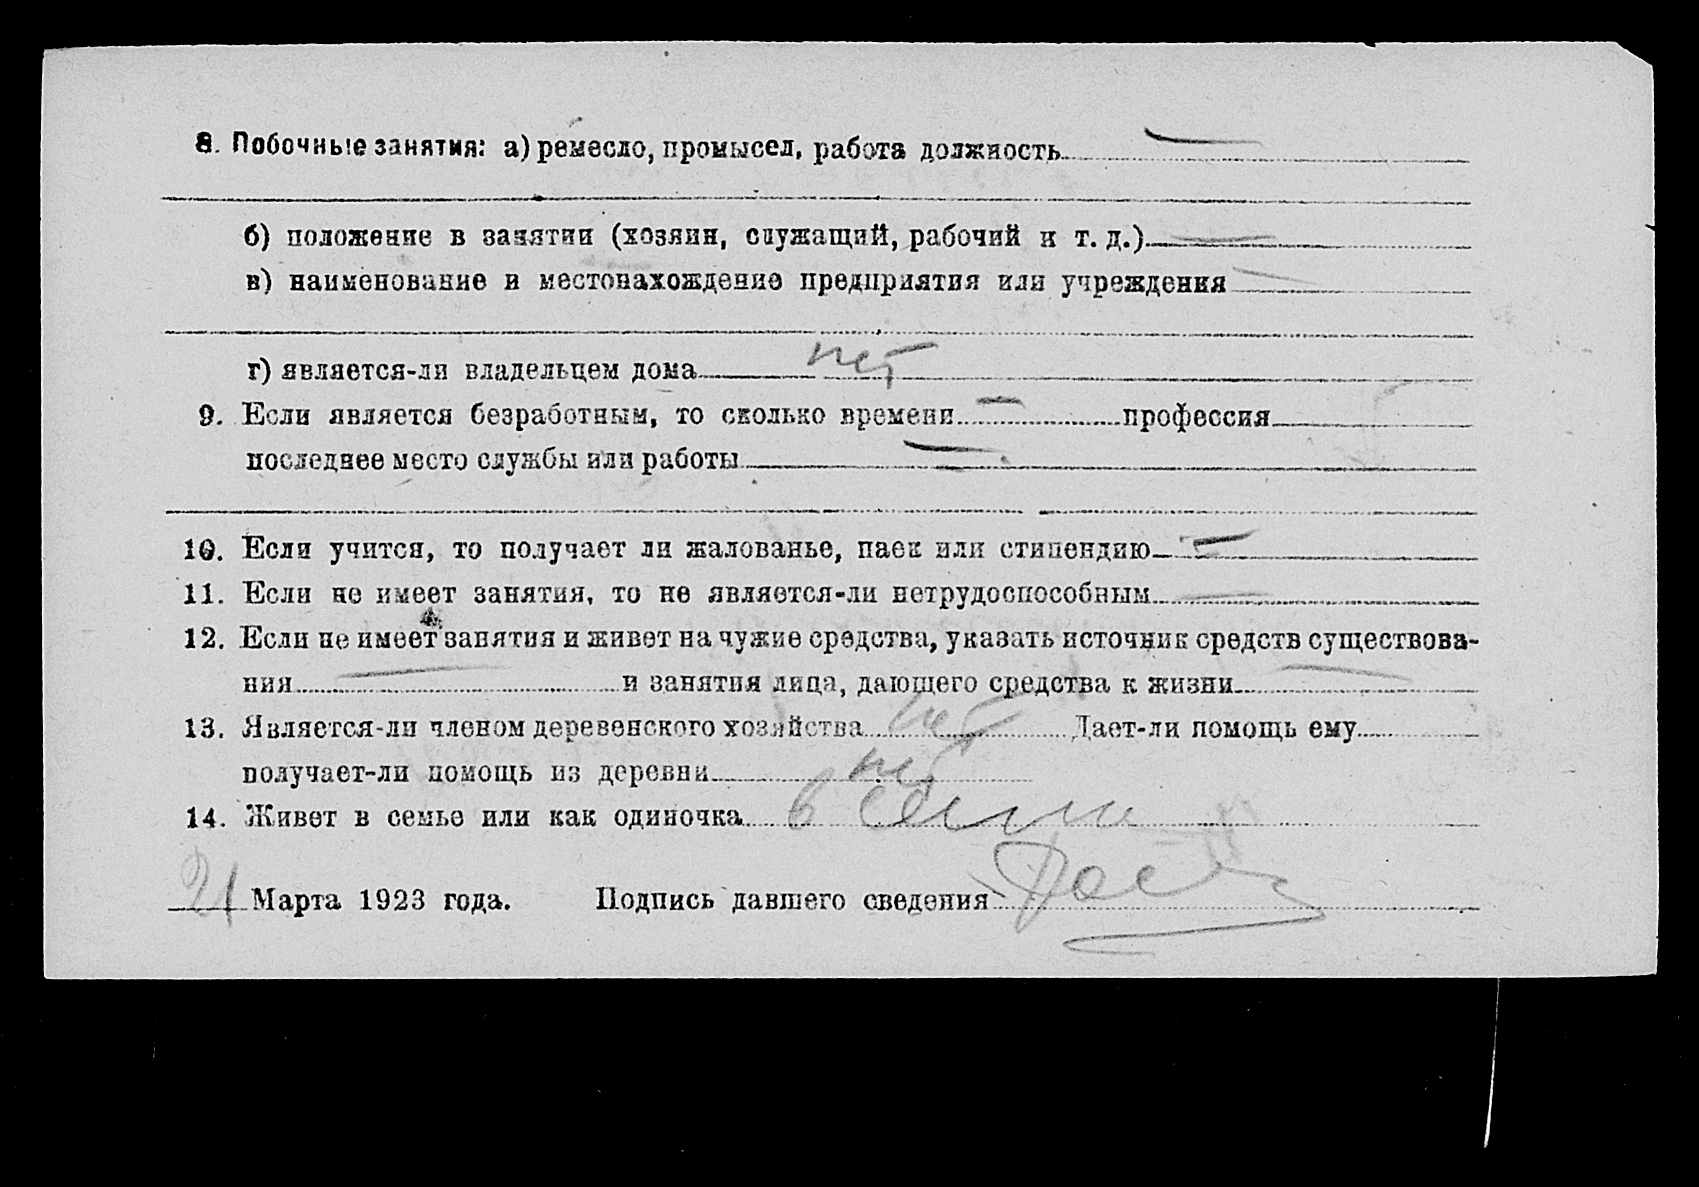 8. Побочные занятия: а) ремесло, промысел, работа должность —
б) положение в занятии (хозяин, служащий, рабочий и т. д.) —
в) наименование и местонахождение предприятия или учреждения —
г) является-ли владельцем дома нет
9. Если является безработным, то сколько времени — профессия
последнее место службы или работы —
10. Если учится, то получает ли жалованье, паек или стипендию —
11. Если не имеет занятия, то не является-ли нетрудоспособным —
12. Если не имеет занятия и живет на чужие средства, указать источник средств существова-
ния — и занятия лица, дающего средства к жизни —
13. Является-ли членом деревенского хозяйства нет Дает-ли помощь ему
получает-ли помощь из деревни нет
14. Живет в семье или как одиночка в семьи
21 Марта 1923 года. Подпись давшего сведения